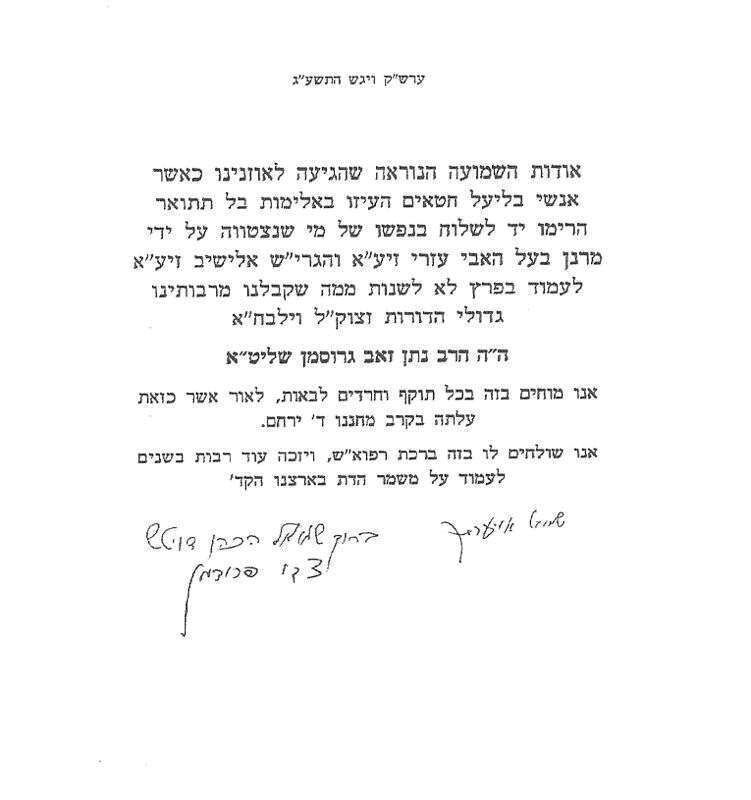 ערש״ק ויגש התשע״ג
אודות השמועה הנוראה שהגיעה לאוזנינו כאשר
אנשי בליעל חטאים העיזו באלימות בל תתואר
הרימו יד לשלוח בנפשו של מי שנצטווה על ידי
מרנן בעל האבי עזרי זיע״א והגרי״ש אלישיב זיע״א
לעמוד בפרץ לא לשנות ממה שקבלנו מרבותינו
גדולי הדורות זצוק״ל וילבח״א
ה״ה הרב נתן זאב גרוסמן שליט״א
אנו מוחים בזה בכל תוקף וחרדים לבאות, לאור אשר כזאת
עלתה בקרב מחננו ד׳ ירחם.
אנו שולחים לו בזה ברכת רפוא״ש, ויזכה עוד רבות בשנים
לעמוד על משמר הדת בארצנו הקד׳
אויערבך
ברוך שמואל הכהן דויטש
צבי פרידמן